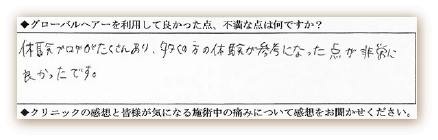 ◆グローバルヘアーを利用して良かった点、不満な点は何ですか？
体験ブログがたくさんあり、多くの方の体験が参考になった点が非常に
良かったです。
◆クリニックの感想と皆様が気になる施術中の痛みについて感想をお聞かせください。